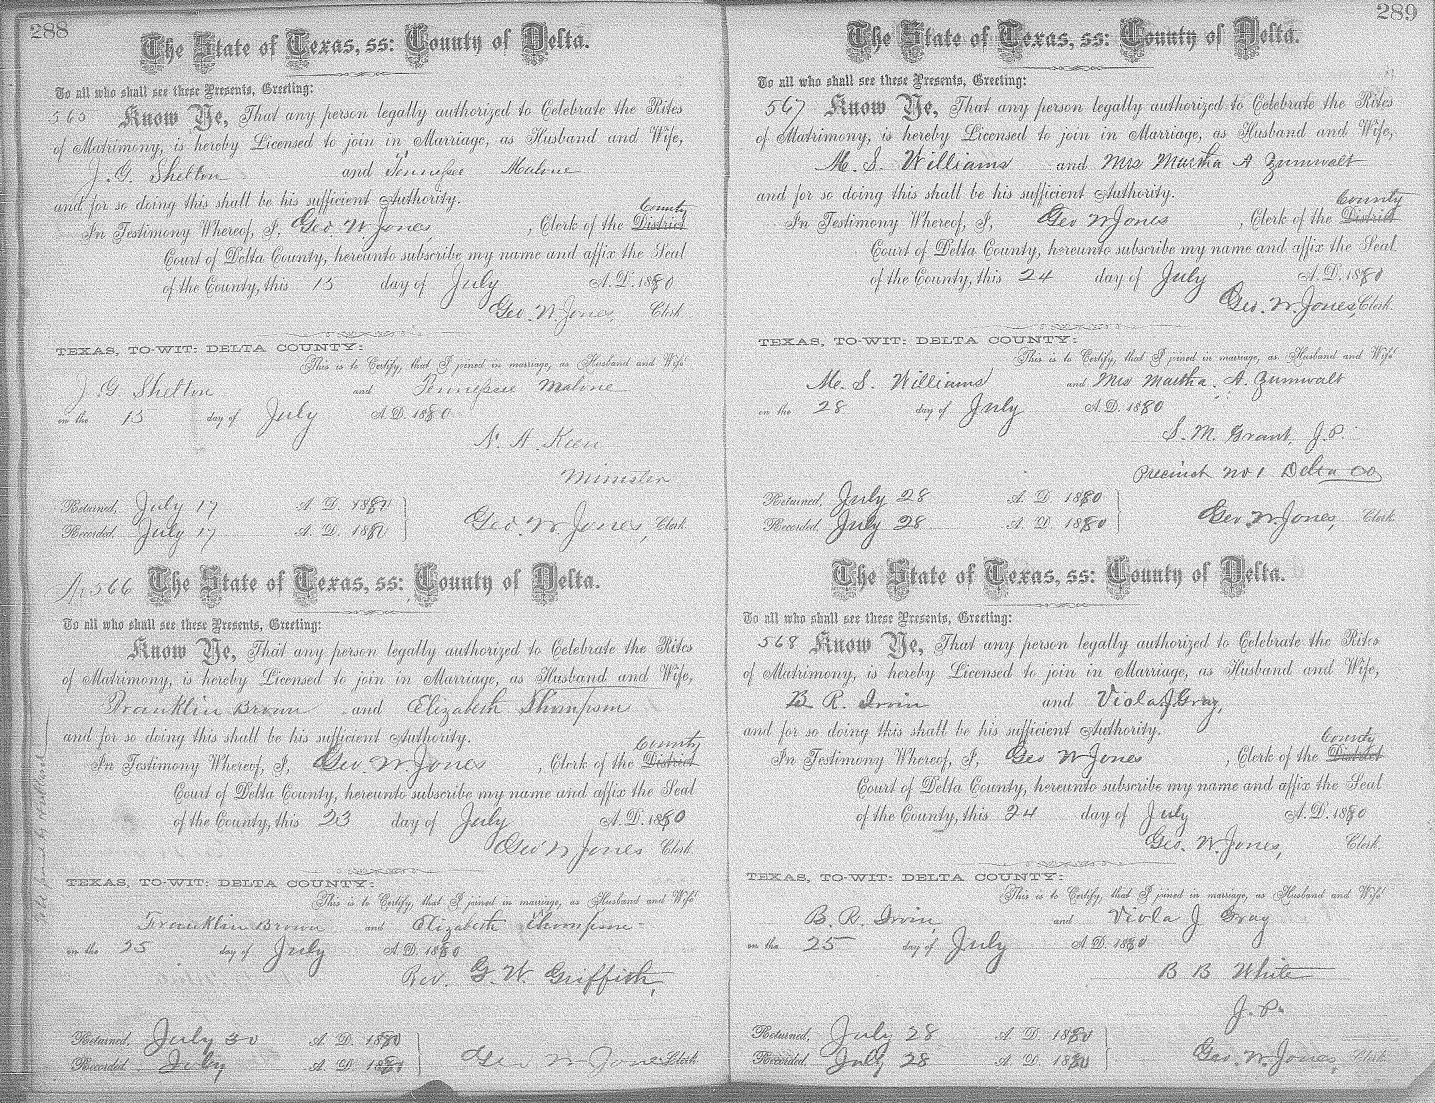 288
The State of Texas, ss: County of Delta.
To all who shall see these Presents, Greeting:
565 Know Ye, That any person legally authorized to Celebrate the Rites
of Matrimony, is hereby Licensed to join in Marriage, as Husband and Wife,
J. G. Shelton and Tennessee Malone
and for so doing this shall be his sufficient Authority.
County
In Testimony Whereof, I, Geo. W. Jones, Clerk of the District
Court of Delta County, hereunto subscribe my name and affix the Seal
of the County, this 15 day of July A. D. 1880
Geo. W. Jones, Clerk.
TEXAS, TO-WIT: DELTA COUNTY:
This is to Certify, that I joined in marriage, as Husband and Wife
J G Shelton and Tennessee Malone
on the 15 day of July A. D. 1880
N. A. Keen
Minister
Returned, July 17 A. D. 1880
Recorded, July 17 A. D. 1880
Geo. W. Jones, Clerk
566 The State of Texas, ss: County of Delta.
To all who shall see these Presents, Greeting:
Know Ye, That any person legally authorized to Celebrate the Rites
of Matrimony, is hereby Licensed to join in Marriage, as Husband and Wife,
Franklin Brown and Elizabeth Thompson
and for so doing this shall be his sufficient Authority.
County
In Testimony Whereof, I, Geo. W Jones, Clerk of the District
Court of Delta County, hereunto subscribe my name and affix the Seal
of the County, this 23 day of July A. D. 1880
Geo W Jones Clerk.
TEXAS, TO-WIT: DELTA COUNTY:
This is to Certify, that I joined in marriage, as Husband and Wife
Franklin Brown and Elizabeth Thompson
on the 25 day of July A. D. 1880
Rev. G. W. Griffith,
Returned, July 30 A. D. 1880
Recorded, July A. D. 1880
Geo W Jones Clerk
289
The State of Texas, ss: County of Delta.
To all who shall see these Presents, Greeting:
567 Know Ye, That any person legally authorized to Celebrate the Rites
of Matrimony, is hereby Licensed to join in Marriage, as Husband and Wife,
M. S. Williams and Mrs Martha A Zumwalt
and for so doing this shall be his sufficient Authority.
County
In Testimony Whereof, I, Geo W Jones, Clerk of the District
Court of Delta County, hereunto subscribe my name and affix the Seal
of the County, this 24 day of July A. D. 1880
Geo. W. Jones, Clerk.
TEXAS, TO-WIT: DELTA COUNTY:
This is to Certify, that I joined in marriage, as Husband and Wife
M. S. Williams and Mrs Martha. A. Zumwalt
on the 28 day of July A. D. 1880
S. M. Grant, J. P.
Precinct No 1 Delta Co
Returned, July 28 A. D. 1880
Recorded, July 28 A. D. 1880
Geo. W. Jones, Clerk
The State of Texas, ss: County of Delta.
To all who shall see these Presents, Greeting:
568 Know Ye, That any person legally authorized to Celebrate the Rites
of Matrimony, is hereby Licensed to join in Marriage, as Husband and Wife,
B. R. Irvin and Viola J Gray,
and for so doing this shall be his sufficient Authority.
County
In Testimony Whereof, I, Geo W Jones, Clerk of the District
Court of Delta County, hereunto subscribe my name and affix the Seal
of the County, this 24 day of July A. D. 1880
Geo. W. Jones, Clerk.
TEXAS, TO-WIT: DELTA COUNTY:
This is to Certify, that I joined in marriage, as Husband and Wife
B. R. Irvin, and Viola J Gray
on the 25 day of July A. D. 1880
B B White
J. P.
Returned, July 28 A. D. 1880
Recorded, July 28 A. D. 1880
Geo. W. Jones, Clerk